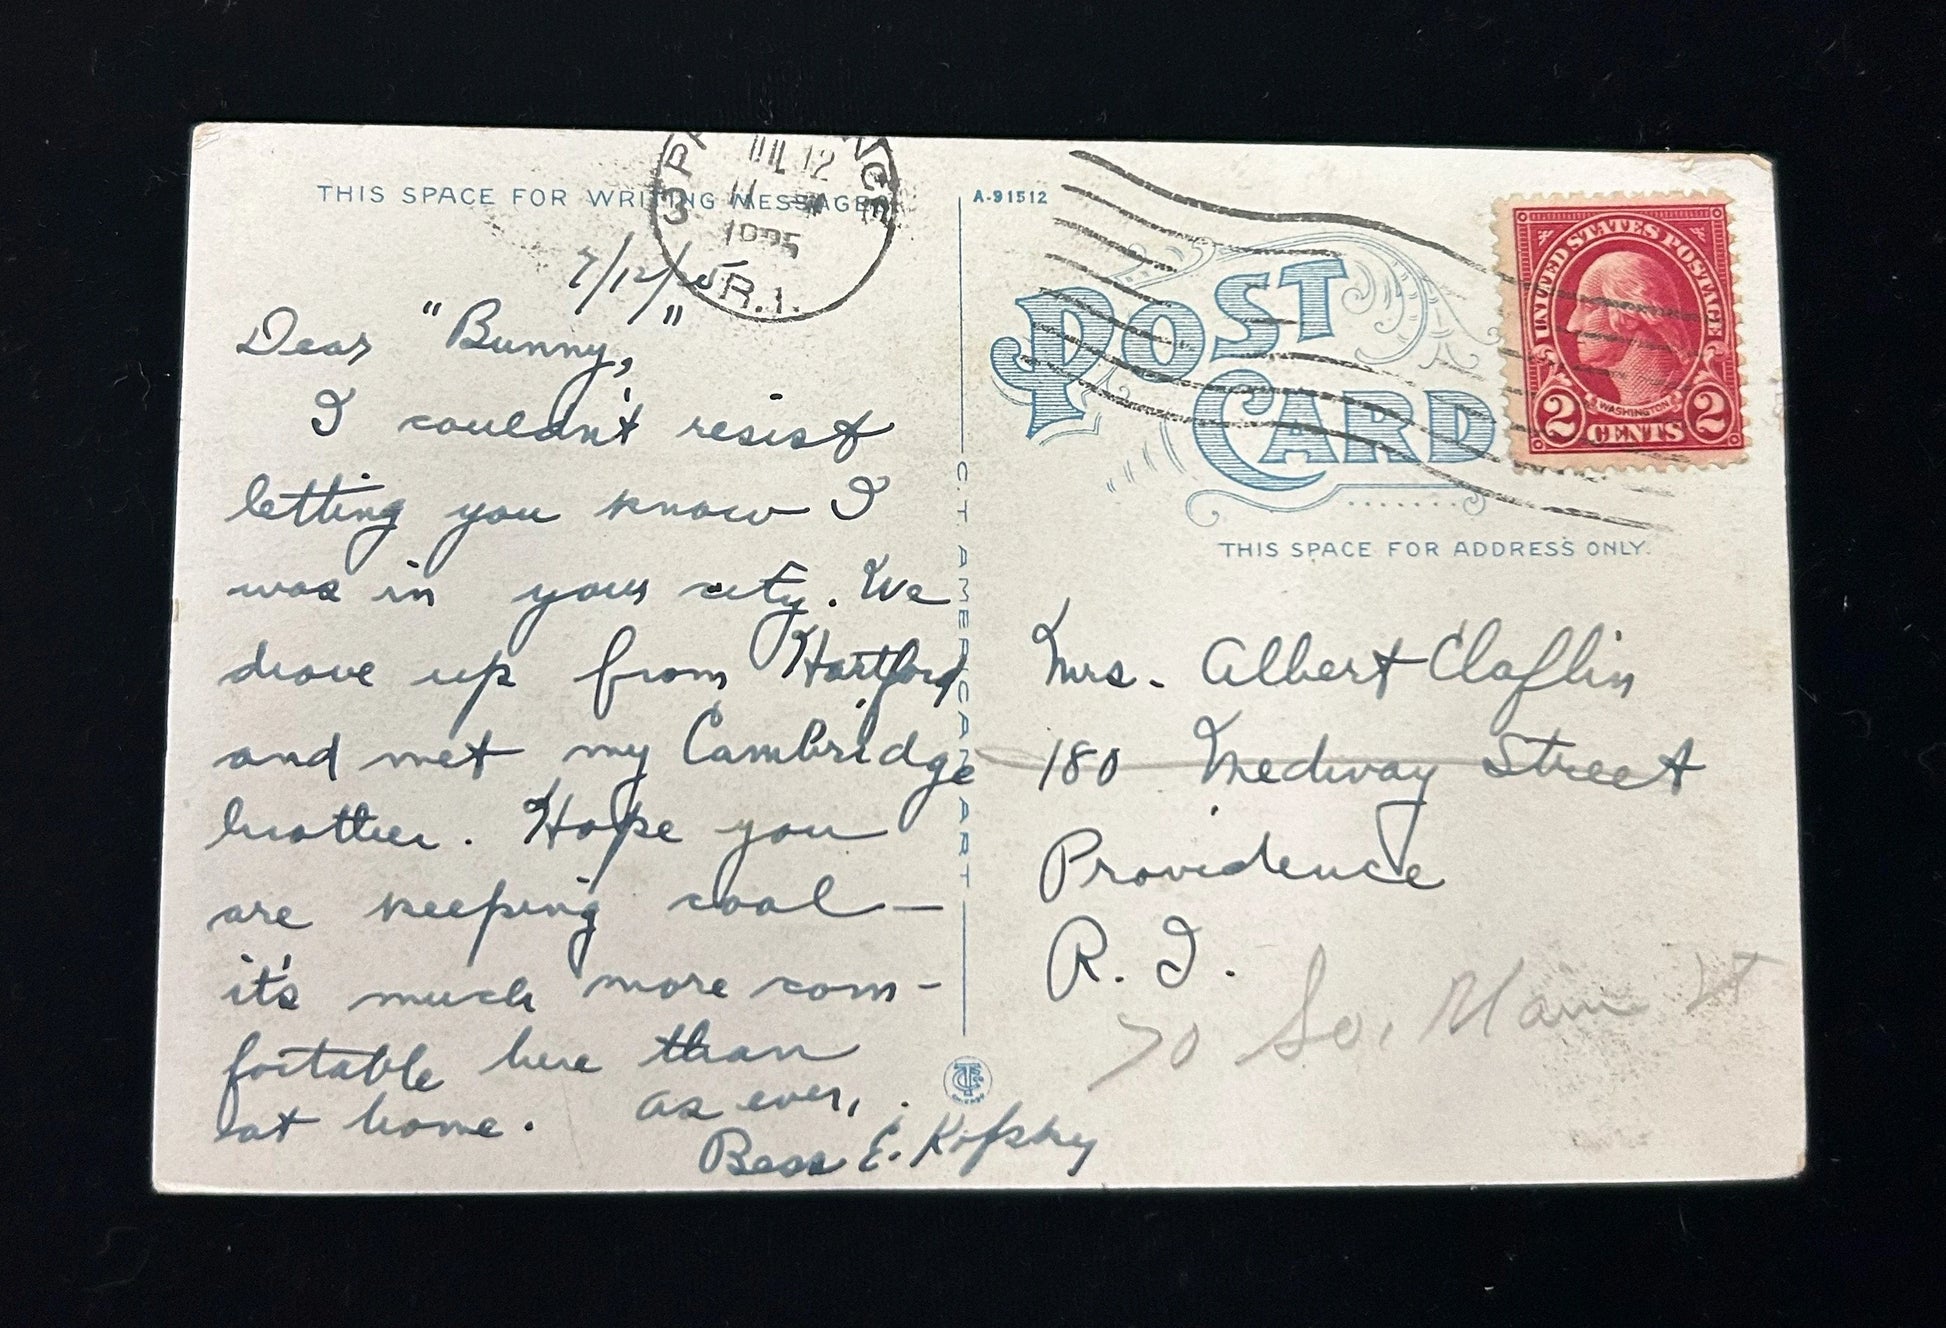 THIS SPACE FOR WRITING MESSAGES
JUL 12
1925
R.I.
7/12/25
Dear "Bunny,"
I couldn't resist
letting you know I
was in your city. We
drove up from Hartford
and met my Cambridge
brother. Hope you
are keeping cool —
it's much more com-
fortable here than
at home. As ever,
Bess E. Kofsky
C.T. AMERICAN ART
A-91512
POST
CARD
THIS SPACE FOR ADDRESS ONLY.
UNITED STATES POSTAGE
WASHINGTON
2 CENTS 2
Mrs. Albert Claflin
180 Medway Street
Providence
R. I.
70 So. Main St